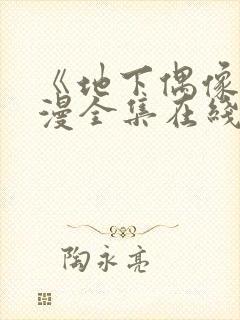 《地下偶像
漫全集在线
陶永亮